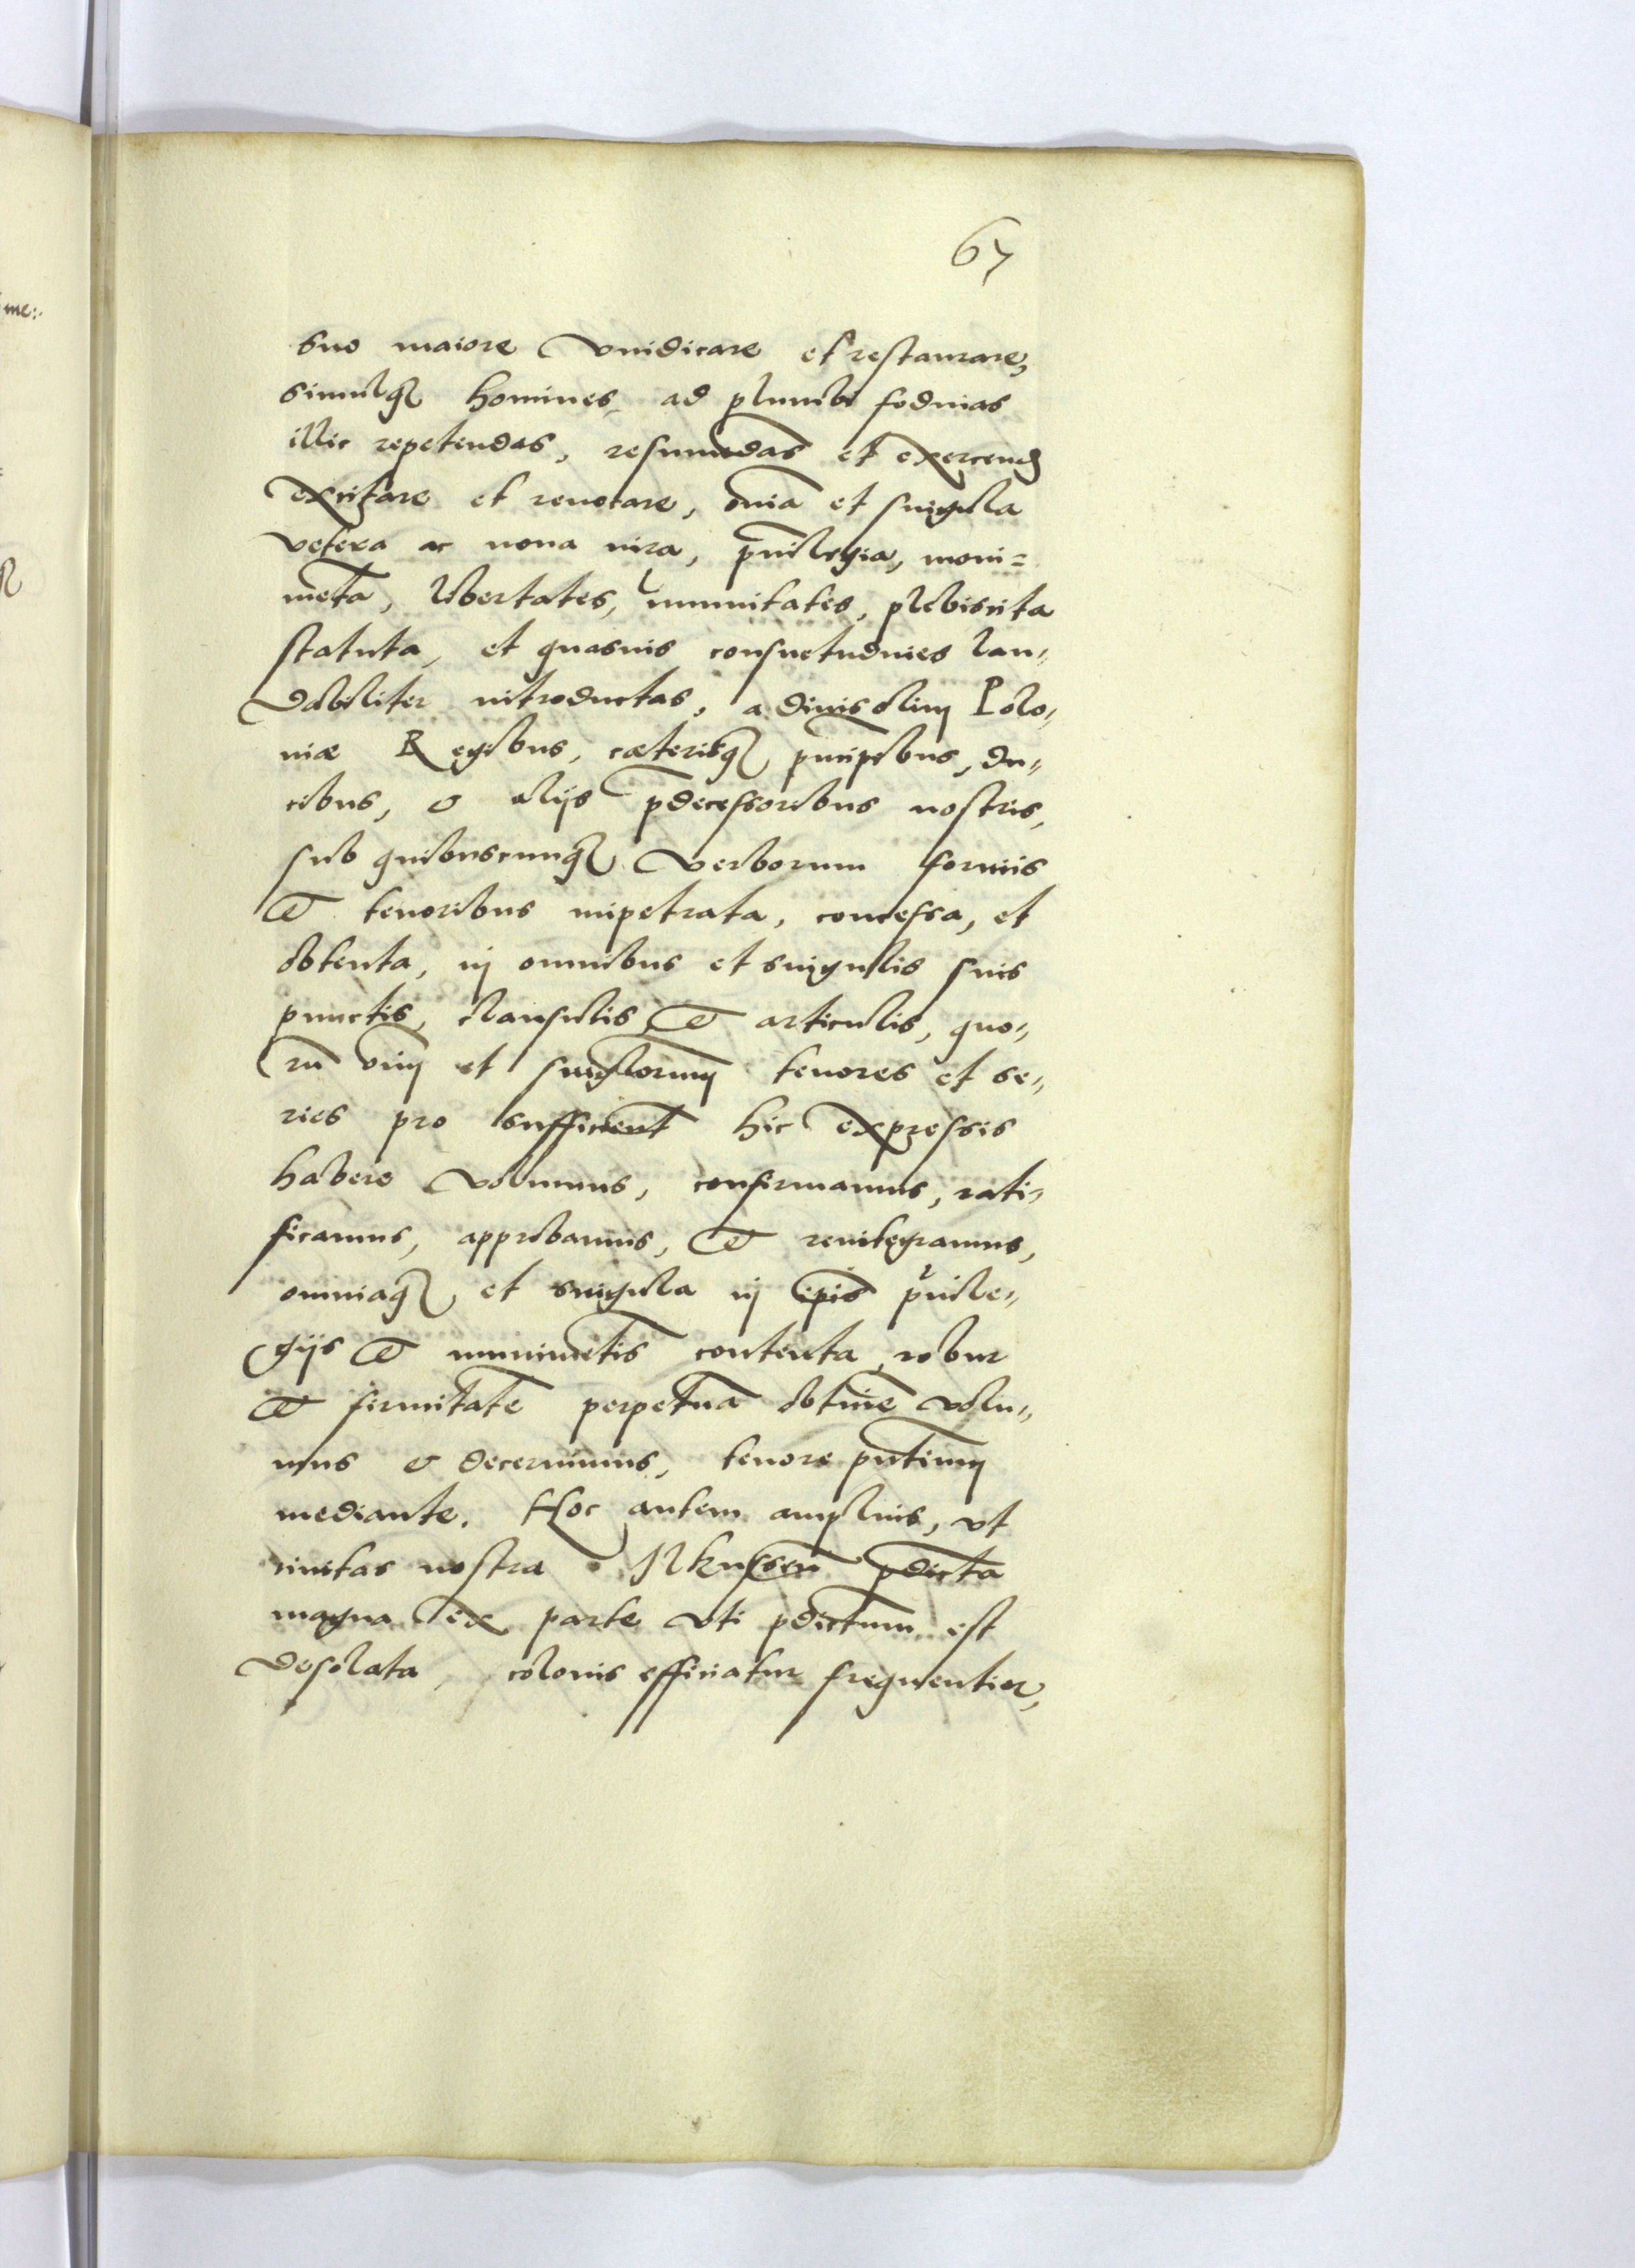 67
suo maiore vindicare et restaurare,
simulq₃ homines, ad plumbi fodinas
illic repetendas, resumēdas et exercend
excitare et reuocare, om̄ia et singula
vetera ac noua iura, priuilegia, moni=
mēta, libertates, immunitates, plebiscita
statuta, et quasuis consuetudines lau„
dabiliter introductas, a diuis olim Polo„
niæ Regibus, cæterisq₃ principibus, du„
cibus, & alijs p̄decessoribus nostris,
sub quibuscunq₃ verborum formis
& tenoribus impetrata, concessa, et
obtenta, in omnibus et singulis suis
punctis, clausulis & articulis, quo„
rū om̄i et singulorum tenores et se„
ries pro sufficient hic expressis
habere volumus, confirmamus, rati„
ficamus, approbamus, & reintegramus,
omniaq₃ et singula in ip̄is priuile„
gijs & munimētis contenta, robur
& firmitatē perpetuā obtinē volu„
mus & decernimus, tenore pn̄tium
mediante. Hoc autem amplius, vt
ciuitas nostra Ilkussen̄ p̄dicta
magna ex parte vti p̄dictum est
desolata, colonis efficiatur frequentior,
me: